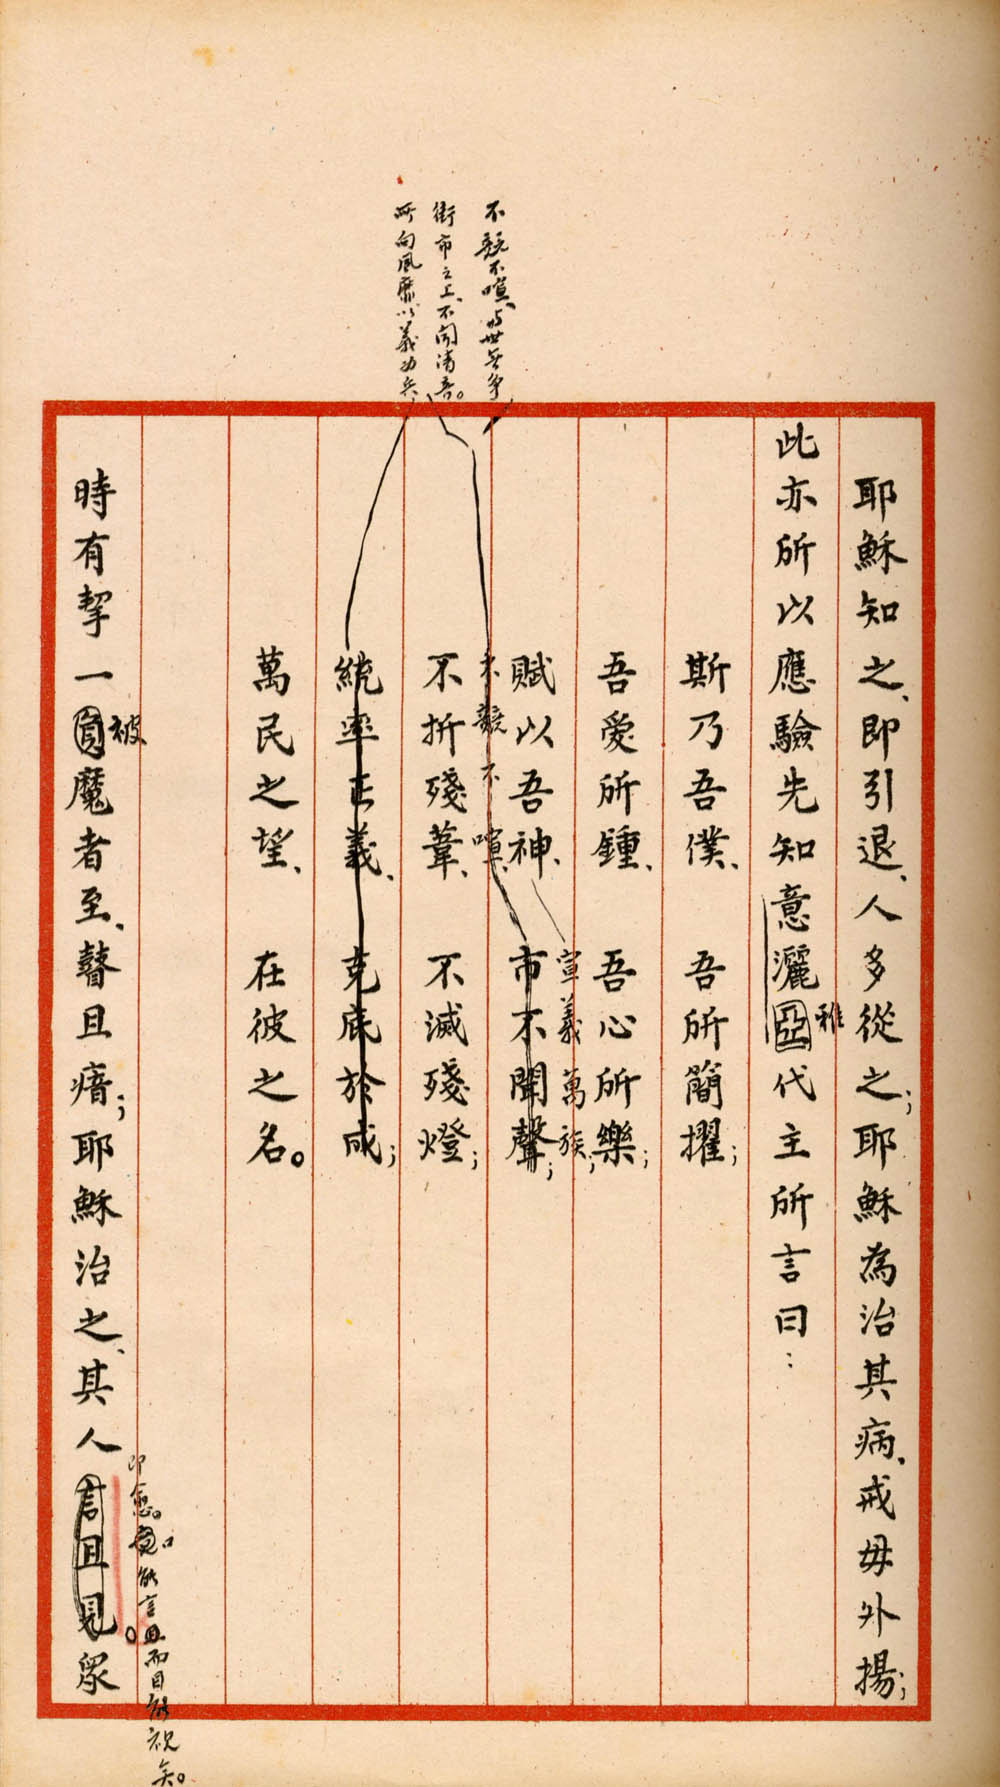 不競不喧、與世無爭
街市之上、不聞清音。
所向風靡、以義為兵、
耶穌知之、即引退、人多從之;耶穌為治其病、戒毋外揚;
此亦所以應驗先知意灑亞代主所言曰:
雅
斯乃吾僕、 吾所簡擢;
吾愛所鍾、 吾心所樂;
宣義萬族;
賦以吾神、 市不聞聲;
不競不喧、
不折殘葦、 不滅殘燈;
統率正義、 克底於成;
萬民之望、 在彼之名。
被
時有挈一負魔者至、瞽且瘖;耶穌治之、其人言且見。眾
即愈。口能言而目能視矣。